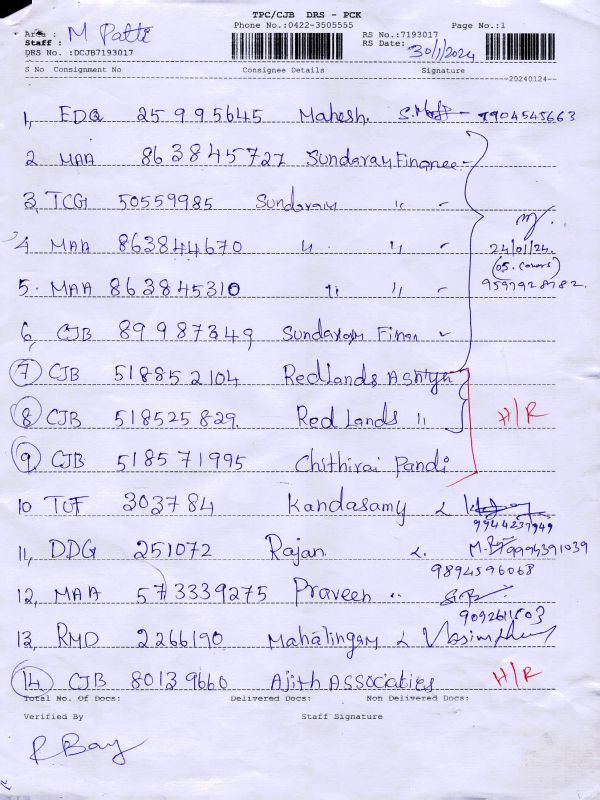 TPC/CJB DRS - PCK
Phone No.:0422-3505555 Page No.:1
Area : M Patti RS No.:7193017
Staff : RS Date: 30/1/2024
DRS No. :DCJB7193017
S No Consignment No Consignee Details Signature
20240124
1, EDQ 25995645 Mahesh. 9904545663
2 MAA 863845727 Sundaram Finance -
3, TCG 50559985 Sundaram " -
4 MAA 863844670 " " -
24/01/24.
5. MAA 863845310 " " -
6, CJB 89987349 Sundaram Finan
7 CJB 518852104 Redlands Ashtya
8 CJB 518525829. Red Lands " H/R
9 CJB 518571995 Chithirai Pandi
10 TUF 303784 Kandasamy
9944237949
11, DDG 251072 Rajan 9994391039
9894596068
12, MAA 573339275 Praveen "
13, RMD 2266190 Mahalingam
14 CJB 80139660 Ajith Associaties H/R
Total No. Of Docs: Delivered Docs: Non Delivered Docs:
Verified By Staff Signature